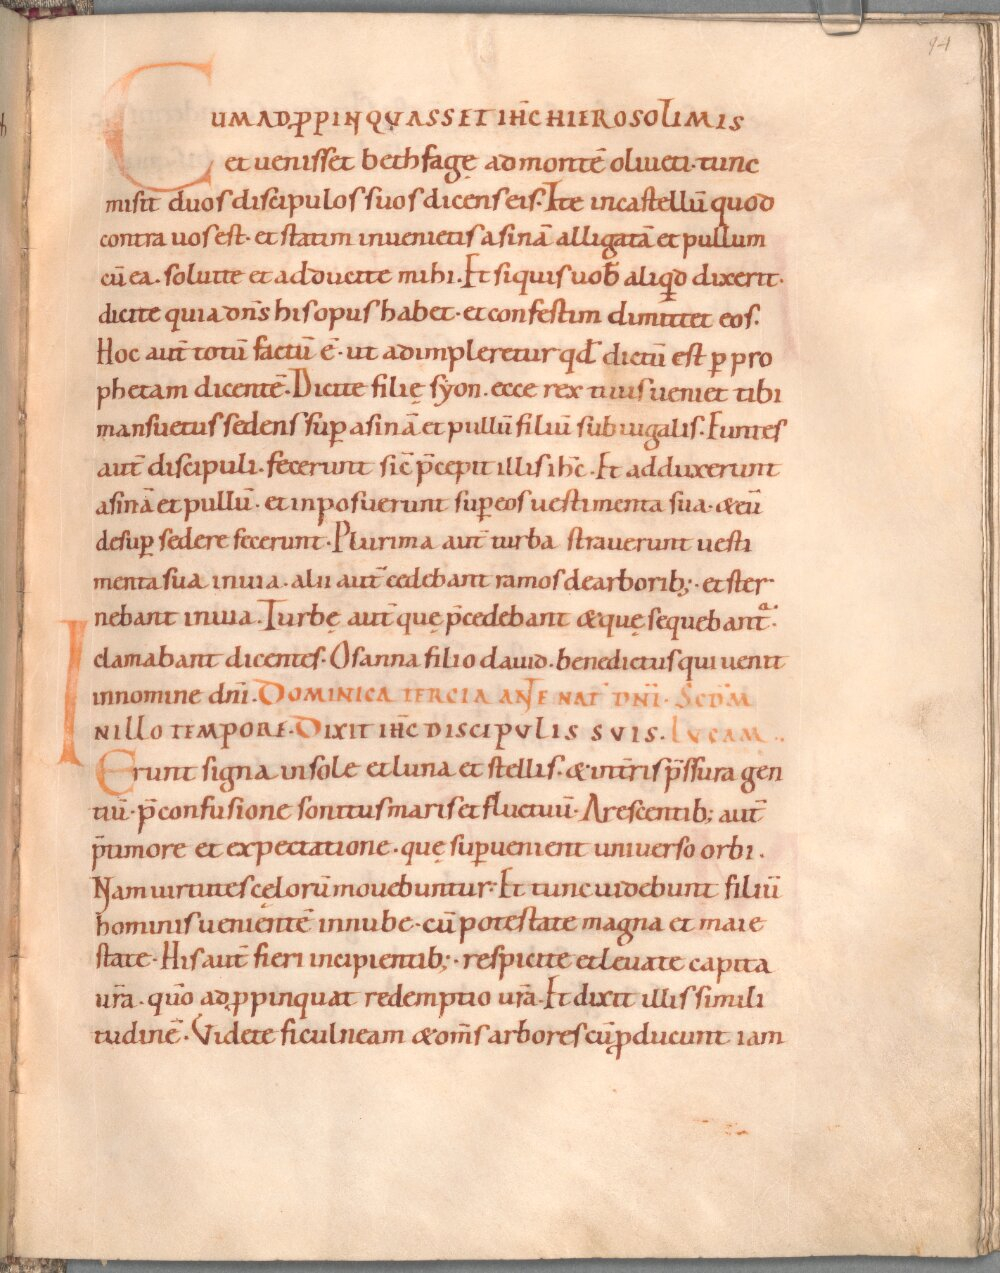 94
CUM ADꝓPINQUASSET IHC̄ HIEROSOLIMIS
et uenisset bethfagę ad montē oliueti· tunc
misit duos discipulos suos dicens eis· Ite in castellū quod
contra uos est· et statim inuenietis asinā alligatā et pullum
cū ea· soluite et adducite mihi· Et siquis uob̄ aliqd̄ dixerit·
dicite quia dn̄s his opus habet· et confestim dimittet eos·
Hoc aut̄ totū factū ē· ut adimpleretur qd̄ dictū est ꝑ pro
phetam dicentē· Dicite filię syon· ecce rex tuus ueniet tibi
mansuetus sedens suꝑ asinā et pullū filiū subiugalis· Euntes
aut̄ discipuli· fecerunt sic̄ p̄cepit illis ihc̄· Et adduxerunt
asinā et pullū· et inposuerunt suꝑ eos uestimenta sua· & eū
desuꝑ sedere fecerunt· Plurima aut̄ turba strauerunt uesti
menta sua in uia· alii aut̄ cedebant ramos de arborib;· et ster
nebant in uia· Turbę aut̄ quę p̄cedebant & quę sequebant᷒·
clamabant dicentes· Osanna filio dauid· benedictus qui uenit
in nomine dn̄i· DOMINICA TERCIA ANTE NAT̄ DN̄I· SCD̄M
IN ILLO TEMPORE· DIXIT IHC̄ DISCIPULIS SUIS· LUCAM··
Erunt signa in sole et luna et stellis· & int̄ris p̄ssura gen
tiū· p̄ confusione sonitus maris et fluctuū· Arescentib; aut̄
p̄ timore et expectatione· quę suꝑuenient uniuerso orbi·
Nam uirtutes cęlorū mouebuntur· Et tunc uidebunt filiū
hominis uenientē in nube· cū potestate magna et maie
state· His aut̄ fieri incipientib;· respicite et leuate capita
ur̄a· quō adꝓpinquat redemptio ur̄a· Et dixit illis simili
tudinē· Videte ficulneam & om̄s arbores cū ꝓducunt iam